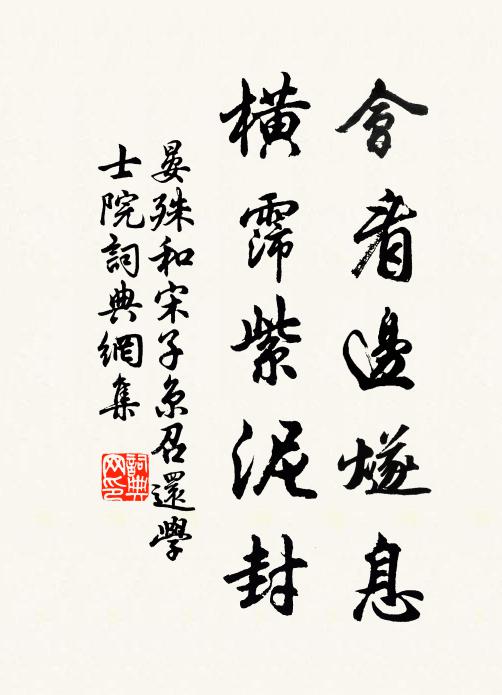 會看邊燧息
橫霈紫泥封
晏殊和宋子京召還學
士院詞典網集
詞典
网印